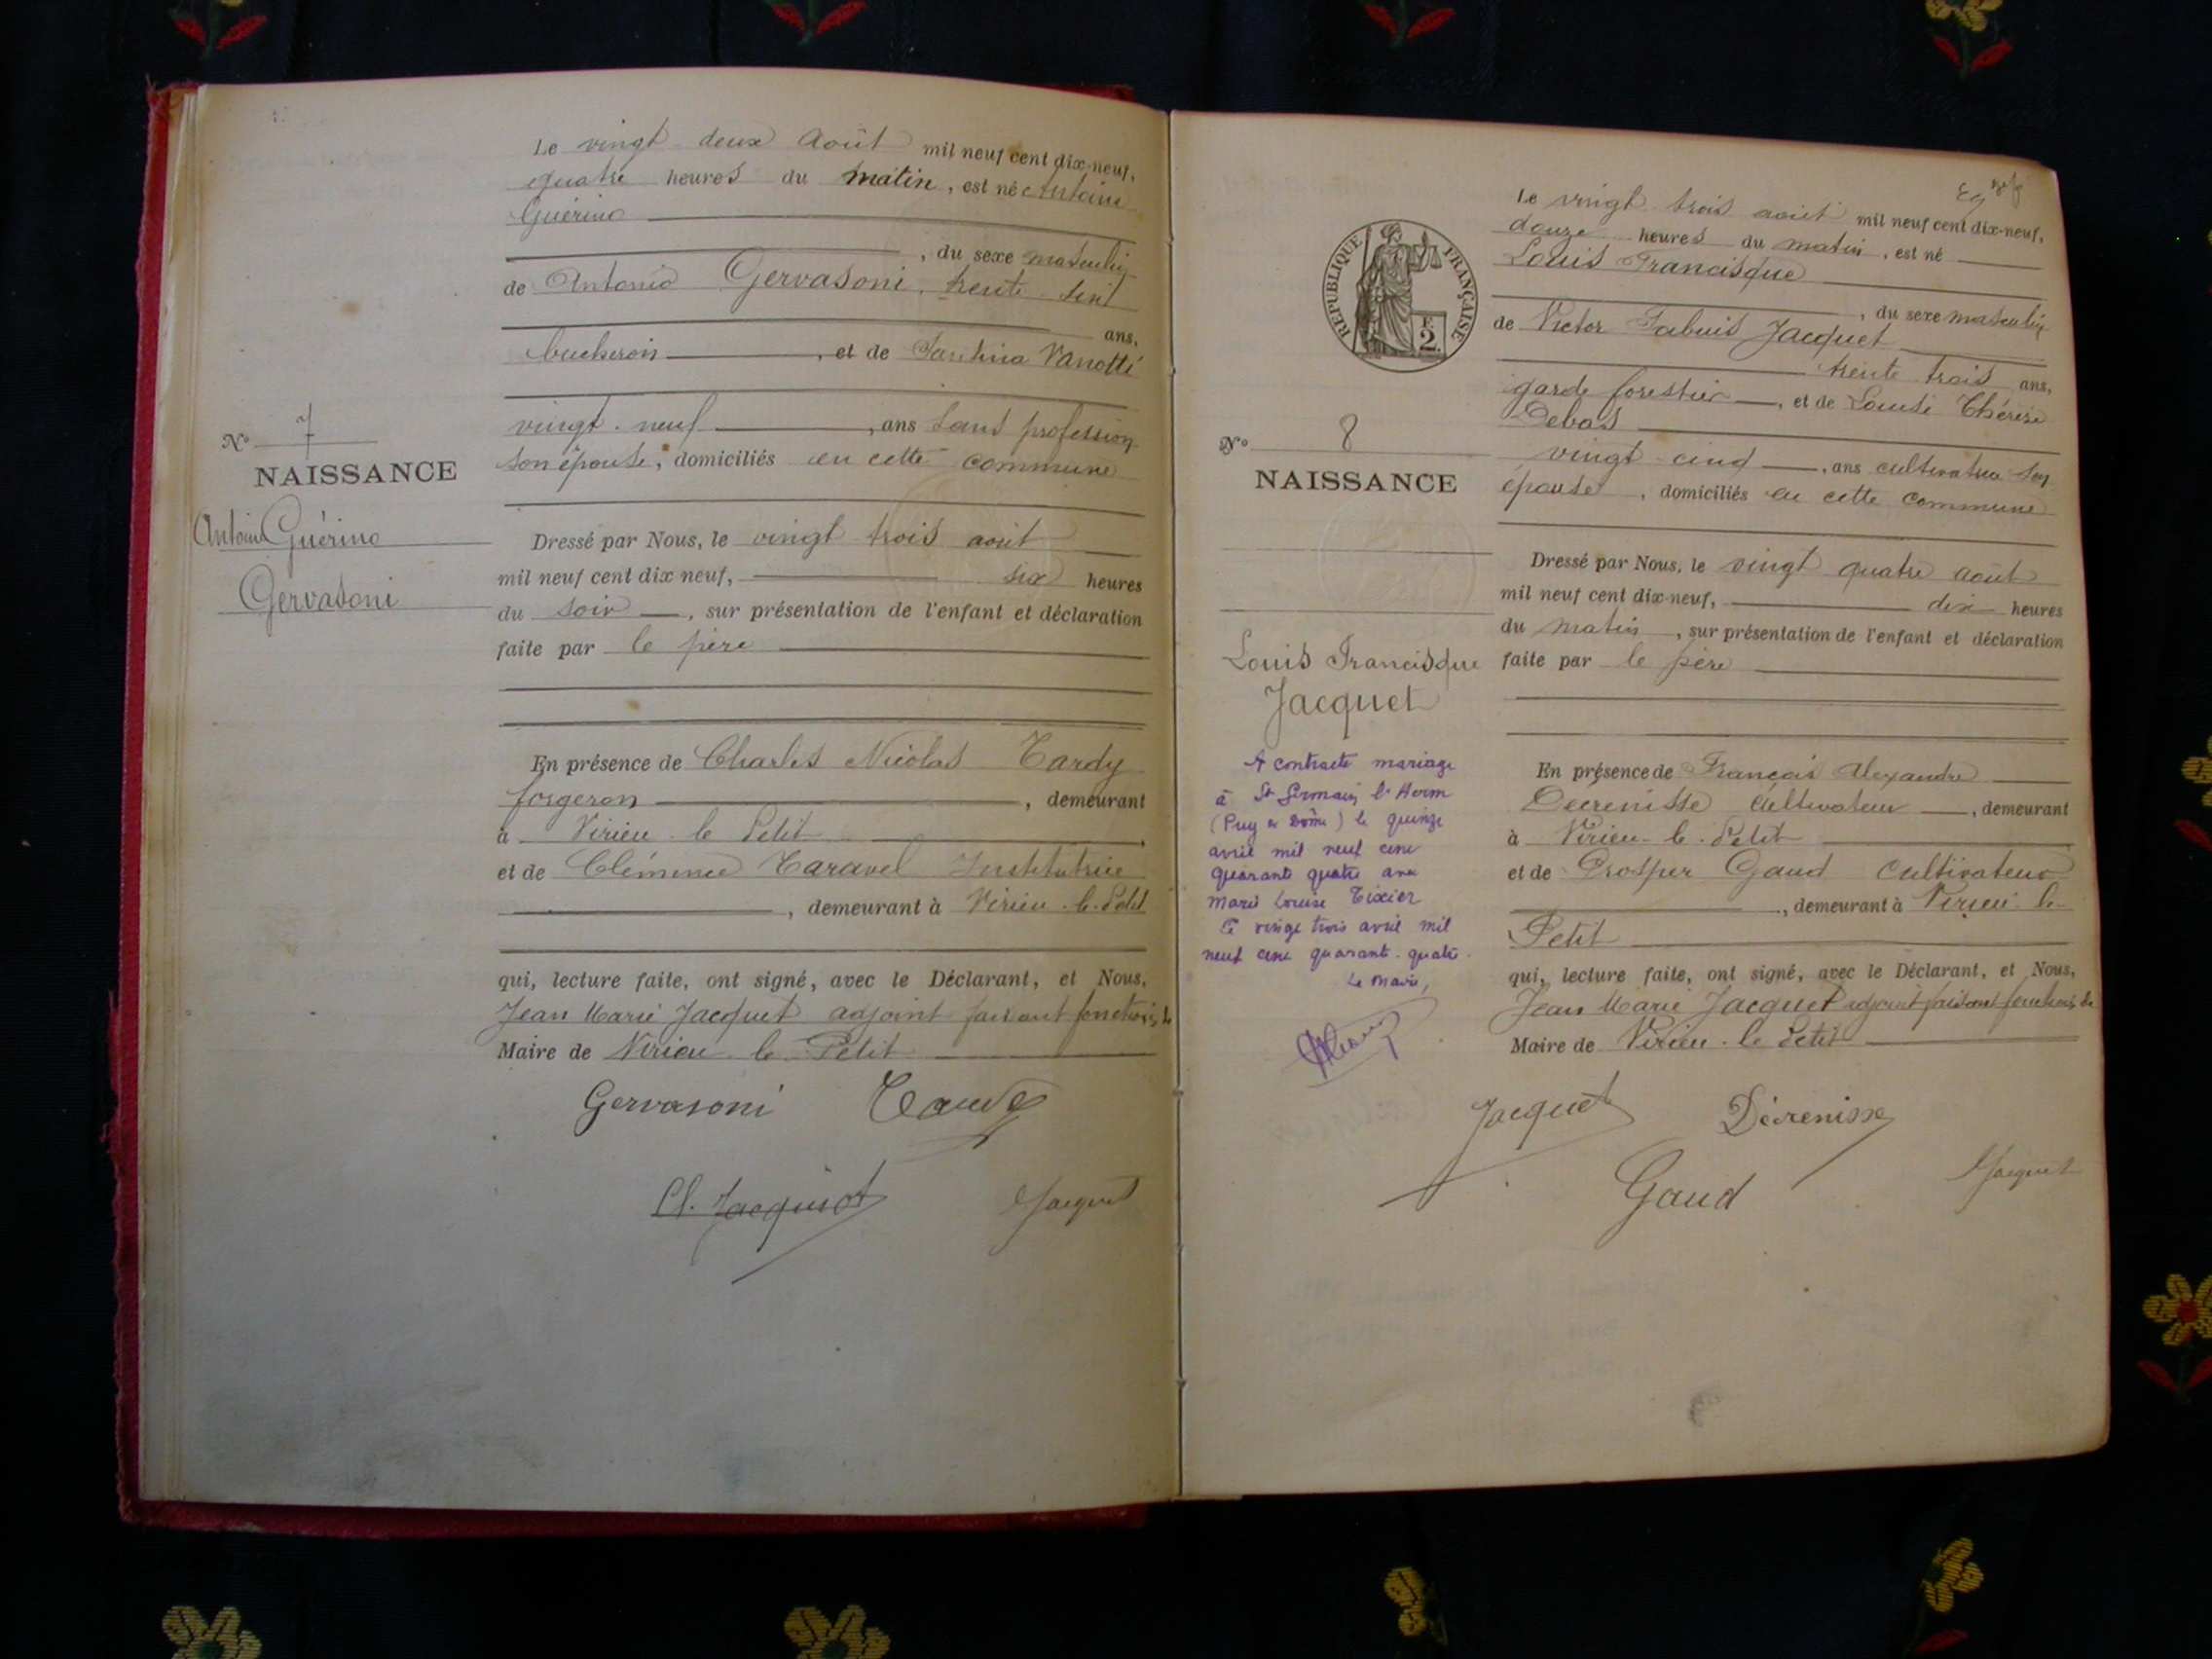 Le vingt deux Août mil neuf cent dix-neuf,
quatre heures du matin, est né Antoine
Guérino
, du sexe masculin
de Antonio Gervasoni, trente
ans,
bucheron, et de Vanotti
vingt-neuf, ans sans profession
son épouse, domiciliés en cette commune
N° 7
NAISSANCE
Antoine Guérino
Gervasoni
Dressé par Nous, le vingt trois août
mil neuf cent dix neuf, six heures
du soir, sur présentation de l'enfant et déclaration
faite par le père
En présence de Charles Nicolas Tardy
forgeron, demeurant
à Virieu-le-Petit
et de Clémence Taravel Institutrice
, demeurant à Virieu-le-Petit
qui, lecture faite, ont signé, avec le Déclarant, et Nous,
Jean Marie Jacquet adjoint faisant fonctions de
Maire de Virieu le Petit
Gervasoni Tardy
Cl. Jacquiot Jacquet
Le vingt trois août mil neuf cent dix-neuf,
douze heures du matin, est né
Louis Francisque
, du sexe masculin
de Victor Jacquet
trente trois ans,
garde forestier, et de Louise Thérèse
Debas
vingt-cinq, ans cultivateur son
épouse, domiciliés en cette commune
RÉPUBLIQUE FRANÇAISE
F.
2.
N° 8
NAISSANCE
Louis Francisque
Jacquet
Dressé par Nous, le vingt quatre août
mil neuf cent dix-neuf, dix heures
du matin, sur présentation de l'enfant et déclaration
faite par le père
A contracté mariage
à St Germain l'Herm
(Puy de Dôme) le quinze
avril mil neuf cent
quarante quatre avec
Marie Louise Tixier
Le vingt trois avril mil
neuf cent quarante-quatre.
Le Maire,
En présence de François Alexandre
Décrenisse Cultivateur, demeurant
à Virieu-le-Petit
et de Prosper Gaud Cultivateur
, demeurant à Virieu-le-
Petit
qui, lecture faite, ont signé, avec le Déclarant, et Nous,
Jean Marie Jacquet adjoint faisant fonctions de
Maire de Virieu-le Petit
Jacquet Décrenisse
Gaud Jacquet